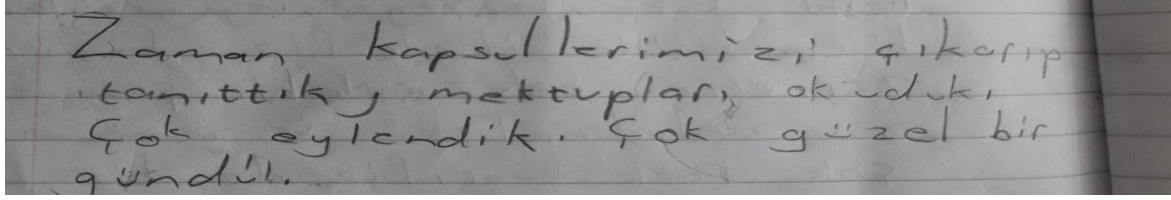 Zaman kapsullerimizi çıkarıp
tanıttık, mektupları okuduk.
Çok eylendik. Çok güzel bir
gündü.